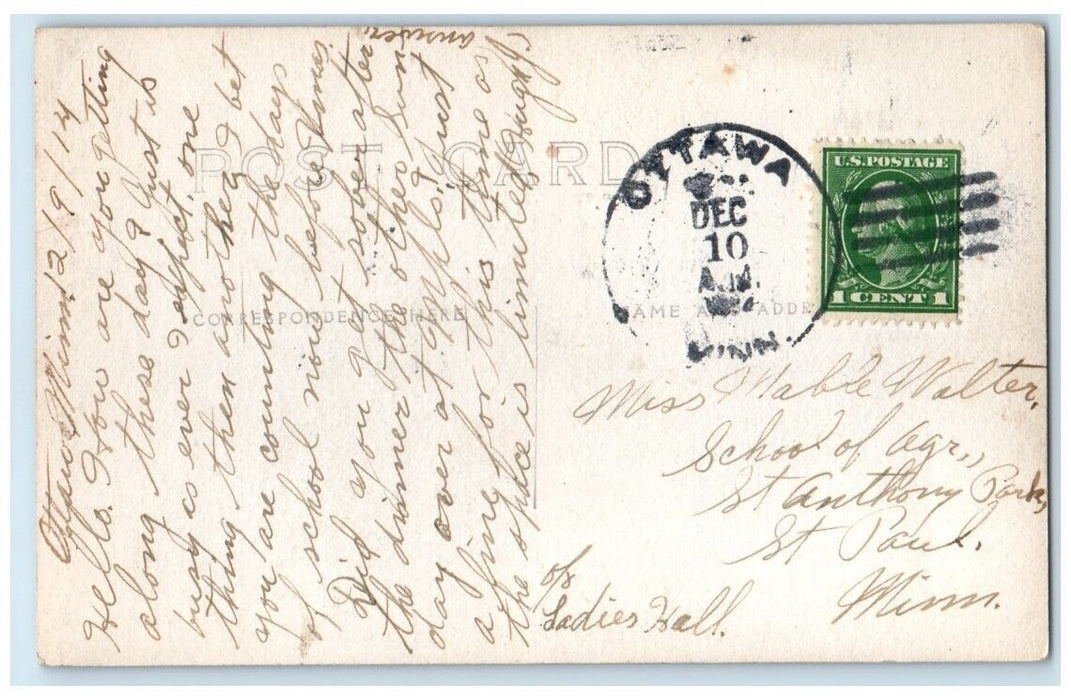 Ottawa Minn 12/9/14
Hello. How are you getting
along these day? Just is
busy as ever I expect, one
thing then another. I bet
you are counting the days
of school now before Xmas
Did you get sober after
the dinner the other Sun
day over at Appls? I must
a fine for this time as
the space is limited Hugh J.
answer.
POST CARD
CORRESPONDENCE HERE
NAME AND ADDRE
OTTAWA
DEC
10
A.M.
MINN.
U.S. POSTAGE
1 CENT 1
Miss Mable Walter,
School of Agr.,
St Anthony Park,
St Paul,
Minn.
Ladies Hall.